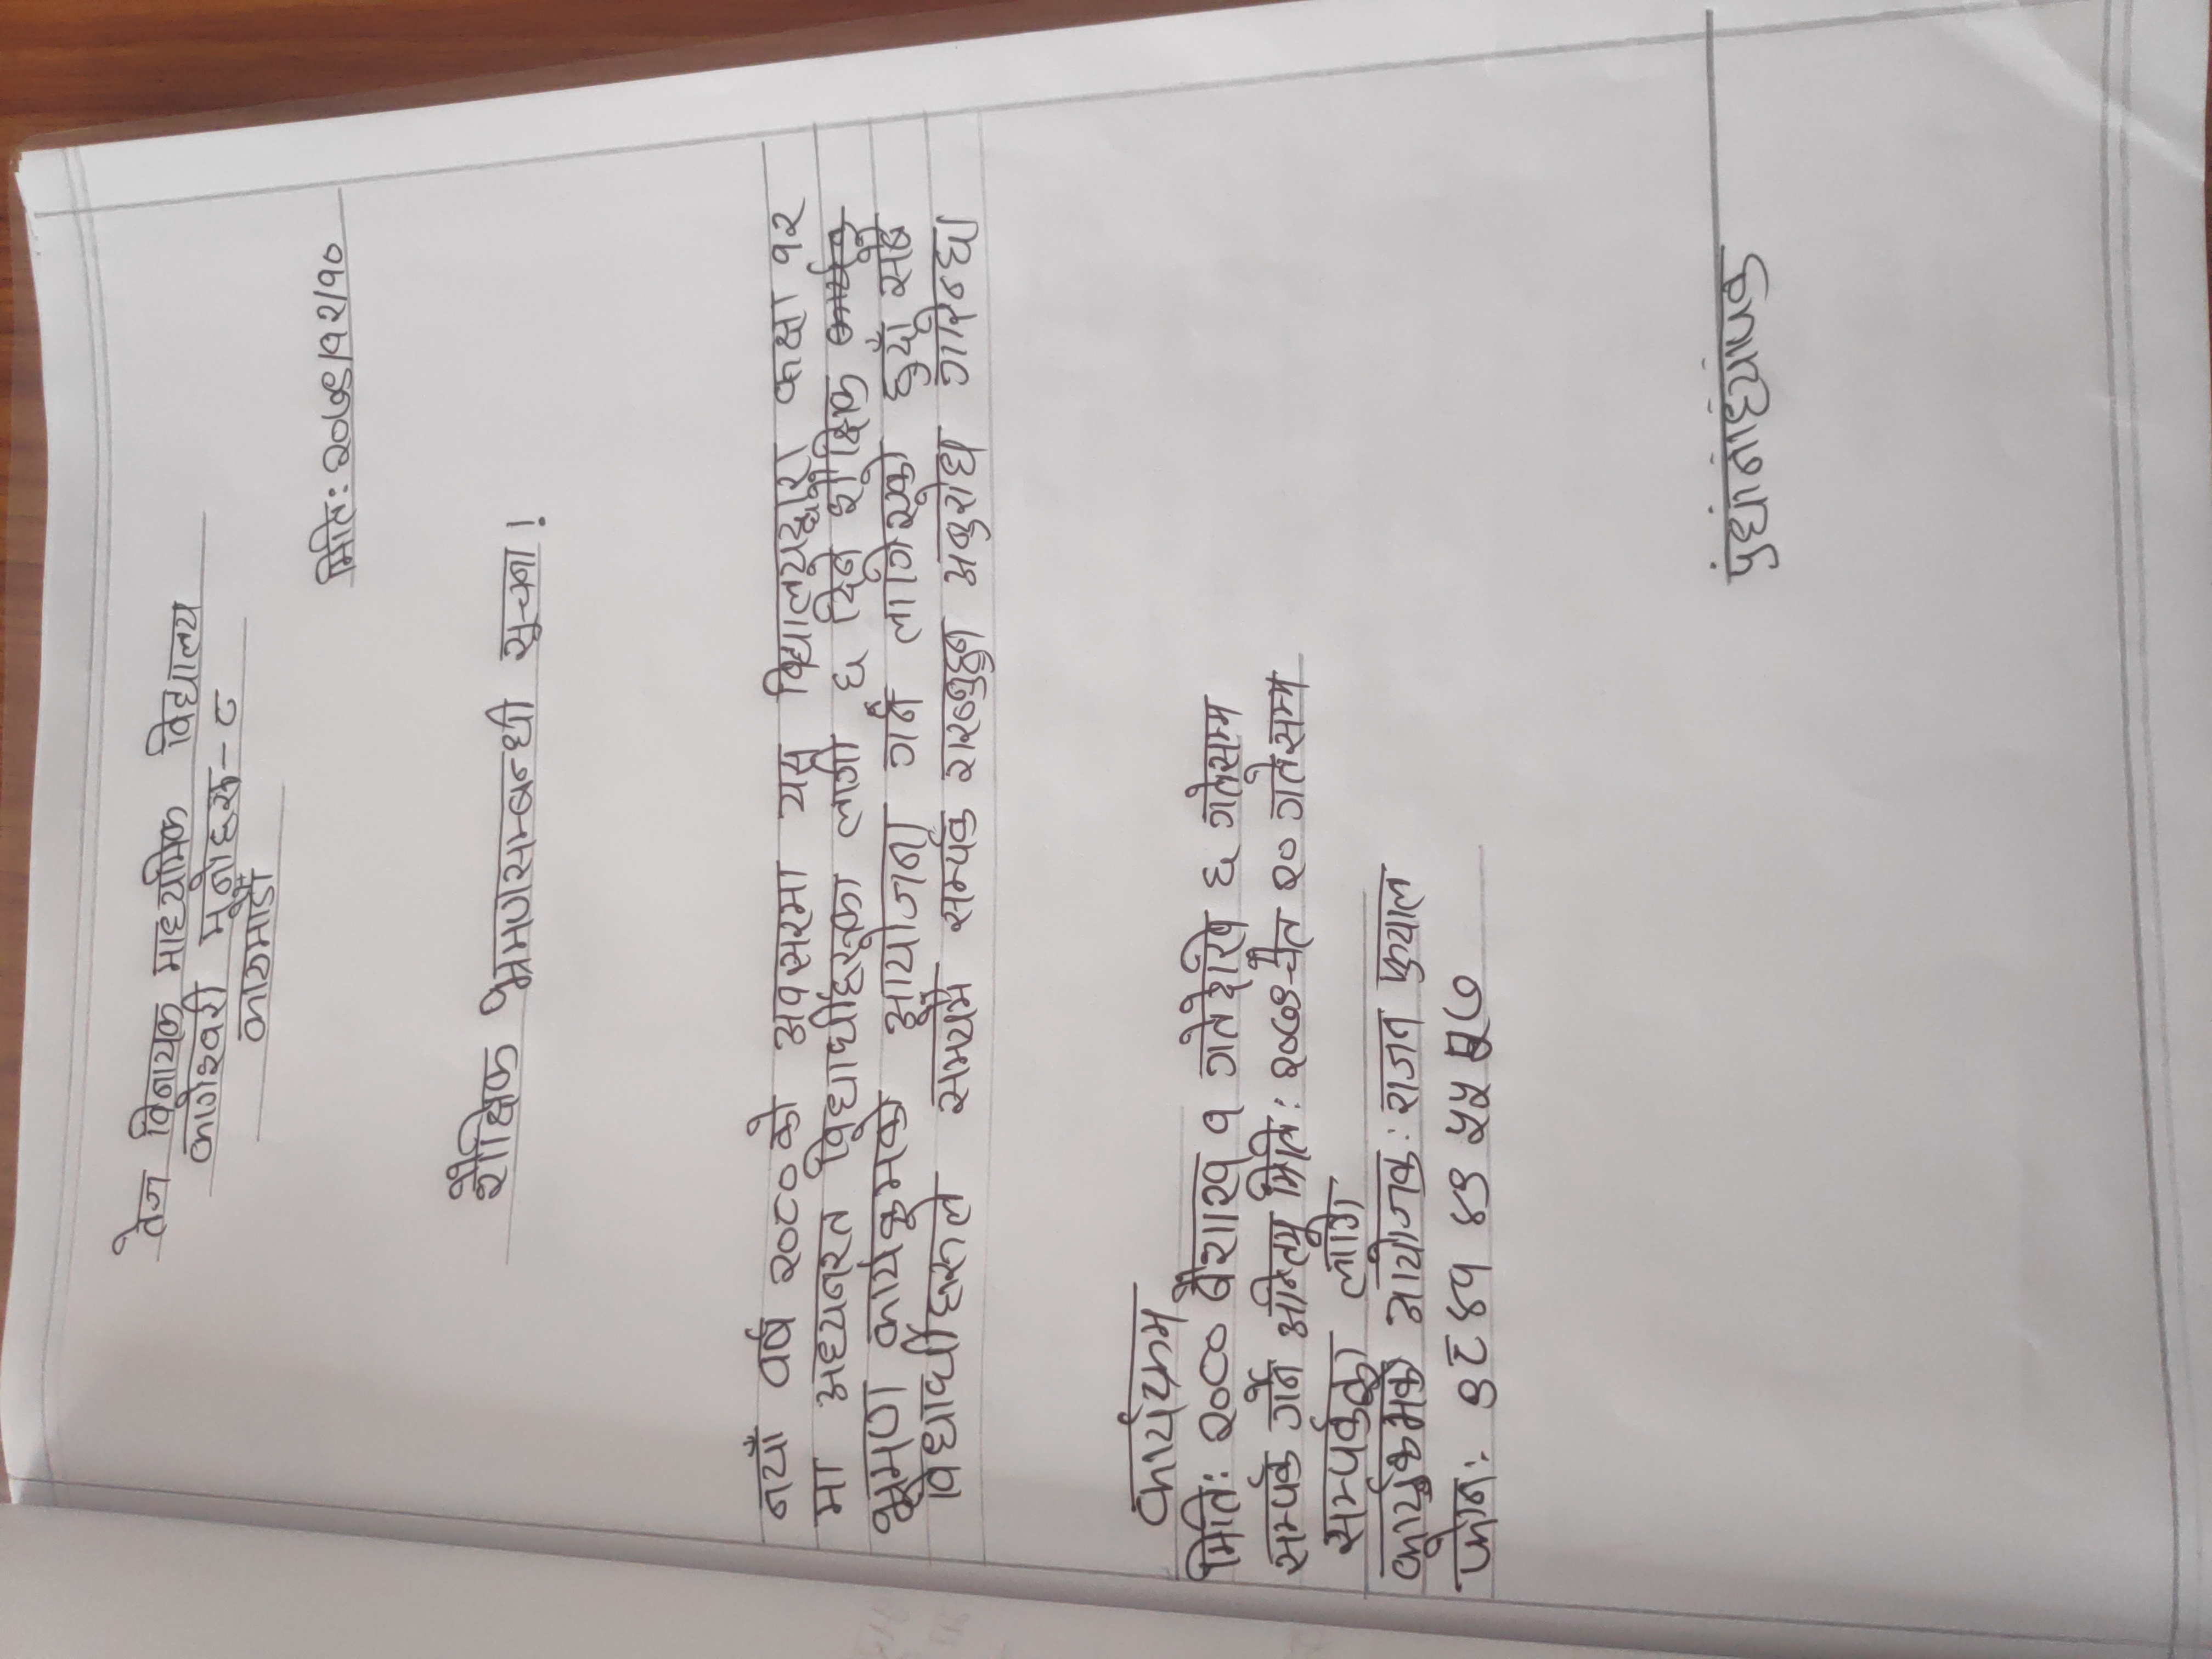 तेज विनायक माध्यमिक विद्यालय
कागेश्वरी मनोहरा - ८
काठमाडौँ
मिति: २०७९/१२/१०
शैक्षिक भ्रमणसम्बन्धी सूचना !
नयाँ वर्ष २०८० को अवसरमा यस विद्यालयद्वारा कक्षा १२
मा अध्यनरत विद्यार्थीहरूका लागी ६ दिने शैक्षिक
भ्रमण कार्यक्रमको आयोजना गर्न लागिएको हुदाँ सबै
विद्यार्थीहरूले समयमै सम्पर्क राख्नुहुन अनुरोध गरिन्छ।
कार्यक्रम
मिति: २०८० बैशाख १ गतेदेखि ६ गतेसम्म
सम्पर्क गर्ने अन्तिम मिति: २०७९ चैत २० गतेसम्म
सम्पर्कका लागि
कार्यक्रमको आयोजक: राजन फुयाल
फोन: ९८४१ ४९ ५५ ७
प्रधानाध्यापक